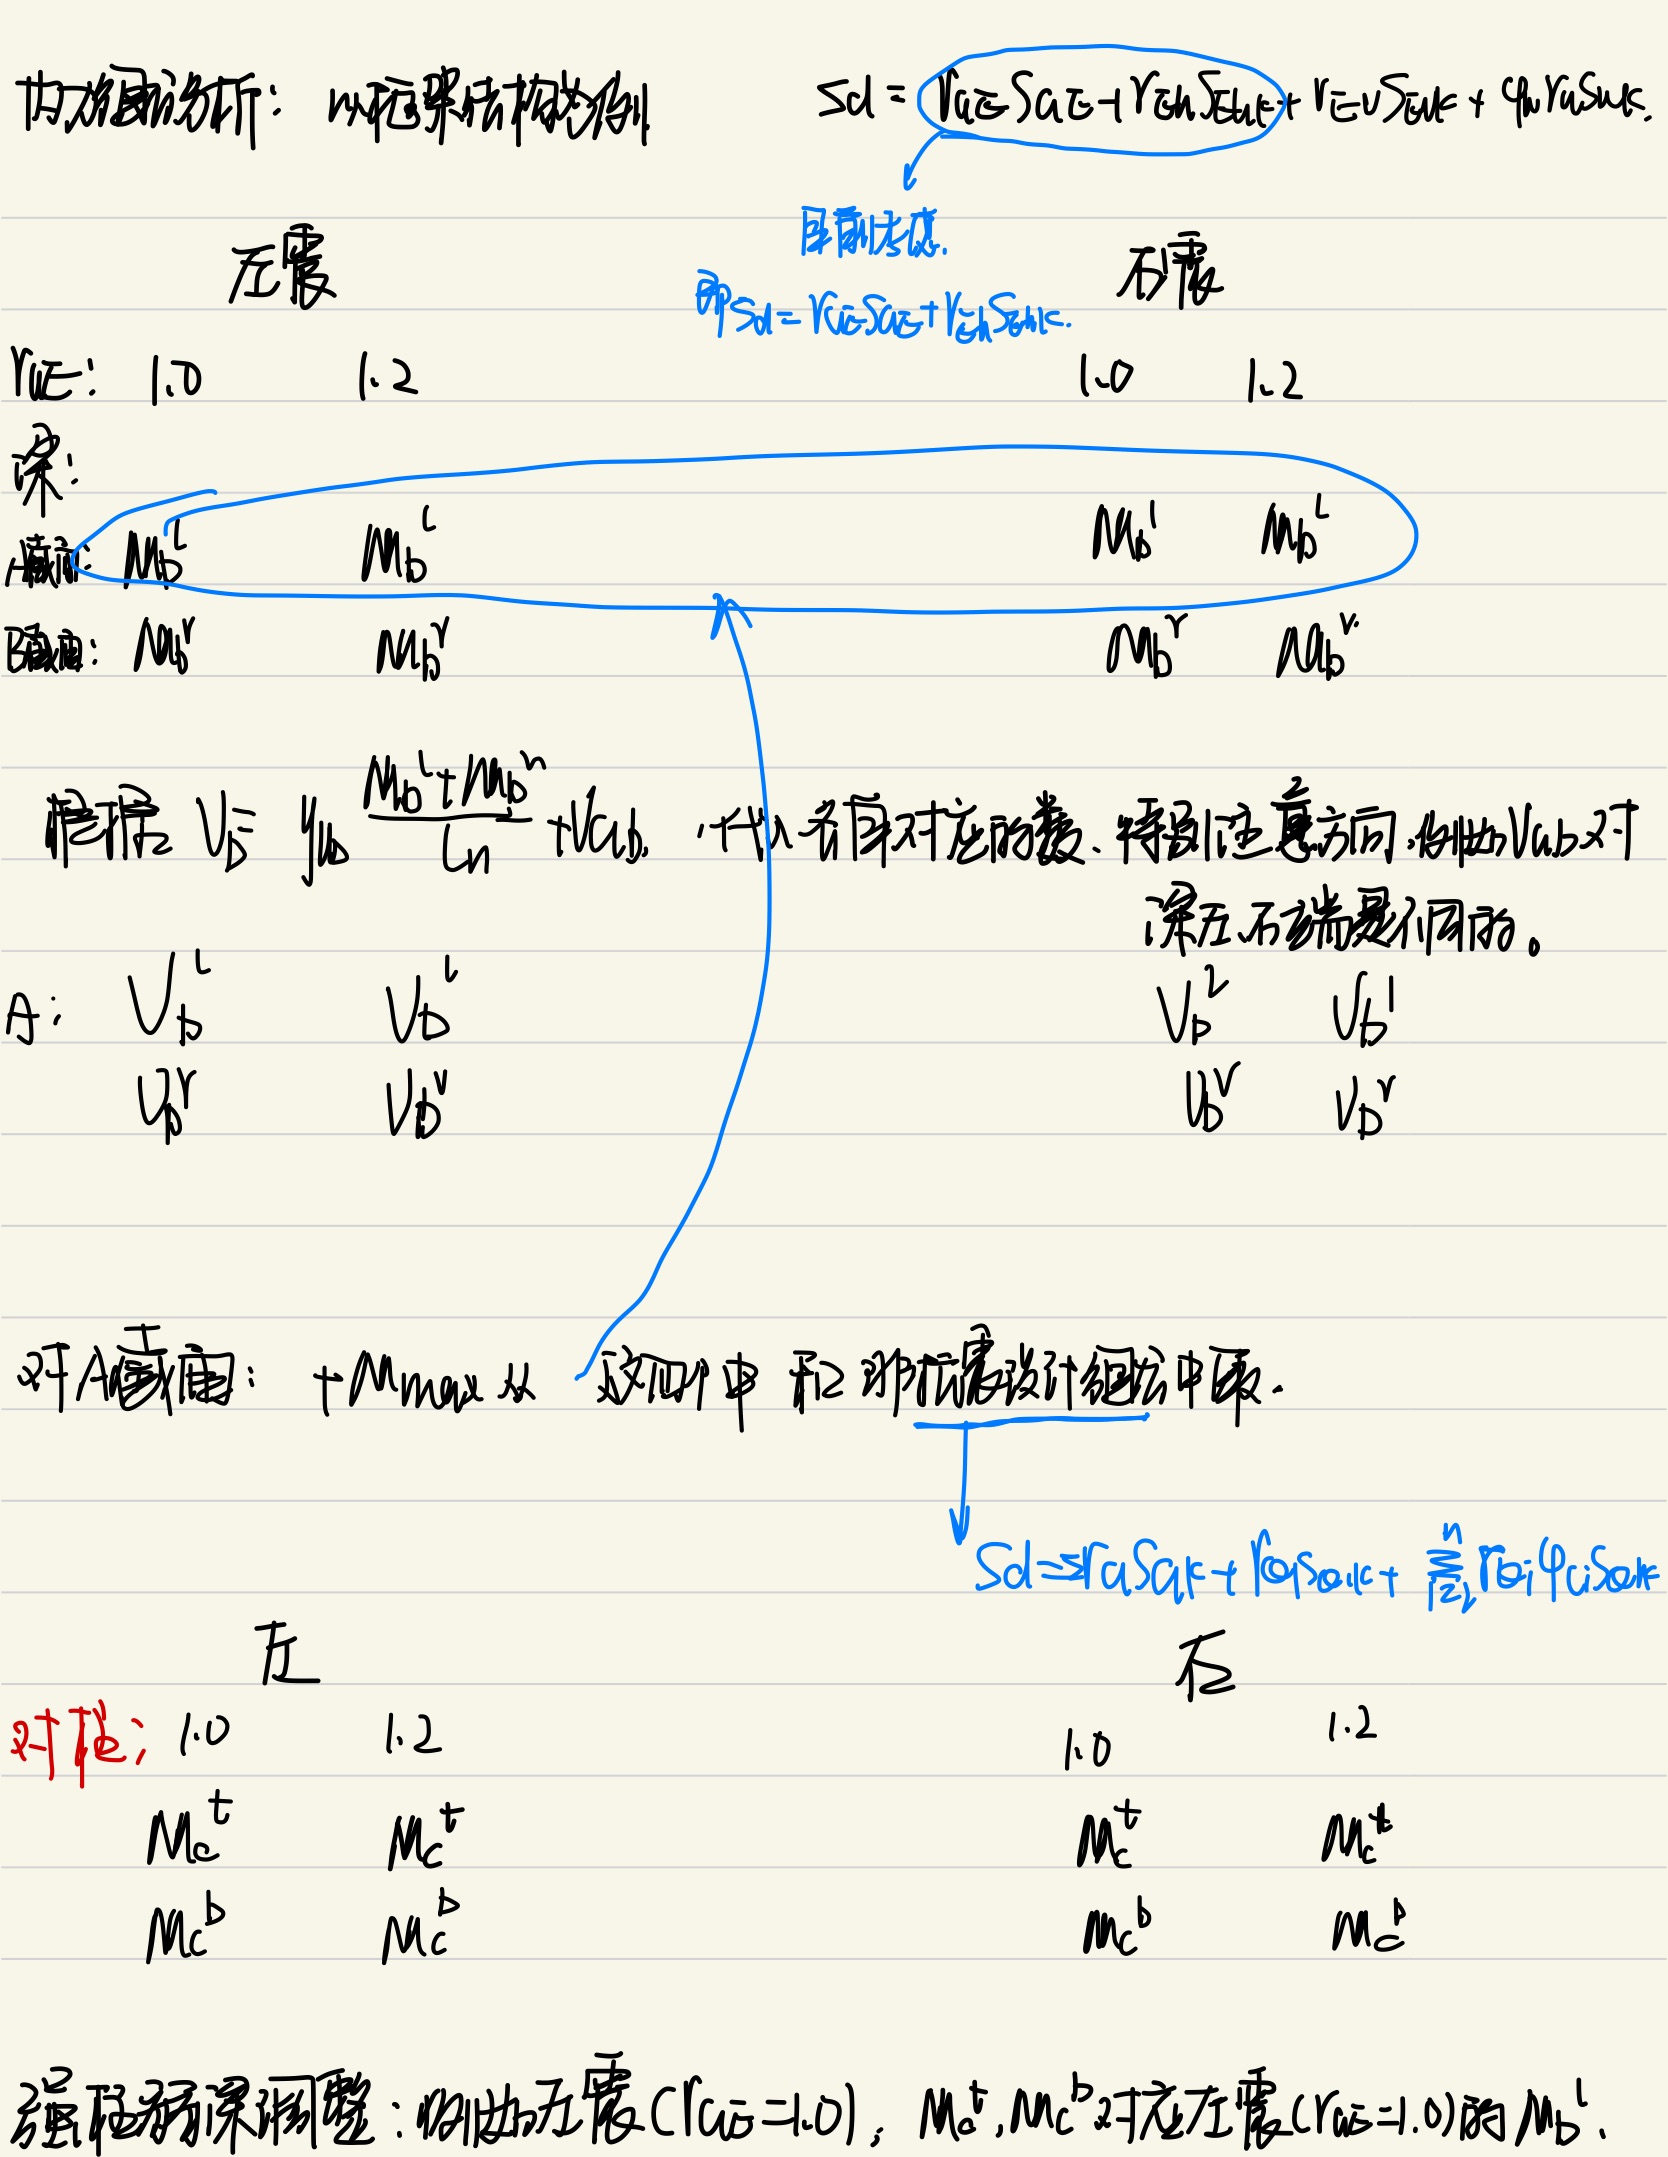 内力组合分析: 以框架结构为例
Sd = γGE SGE + γEh SEhk + γEv SEvk + φw γw Swk.
目前考虑.
即 Sd = γGE SGE + γEh SEhk.
左震 右震
γGE: 1.0 1.2 1.0 1.2
梁:
A截面: Mb^l Mb^l Mb^l Mb^l
B截面: Mb^r Mb^r Mb^r Mb^r
根据 Vb = ηvb (Mb^l + Mb^r)/Ln + VGb, 代入各自对应的数、特别注意方向,例如VGb对
梁左、右端是不同的。
A: Vb^l Vb^l Vb^l Vb^l
Vb^r Vb^r Vb^r Vb^r
对A截面: +Mmax 从 这四个中 和 非抗震设计组合中取.
Sd = ΣγG SGk + γQ1 SQ1k + Σ(i=2→n) γQi φCi SQik
左 右
对柱: 1.0 1.2 1.0 1.2
Mc^t Mc^t Mc^t Mc^t
Mc^b Mc^b Mc^b Mc^b
强柱弱梁调整: 例如左震(γGE=1.0), Mc^t, Mc^b 对应左震(γGE=1.0)的 Mb^l.